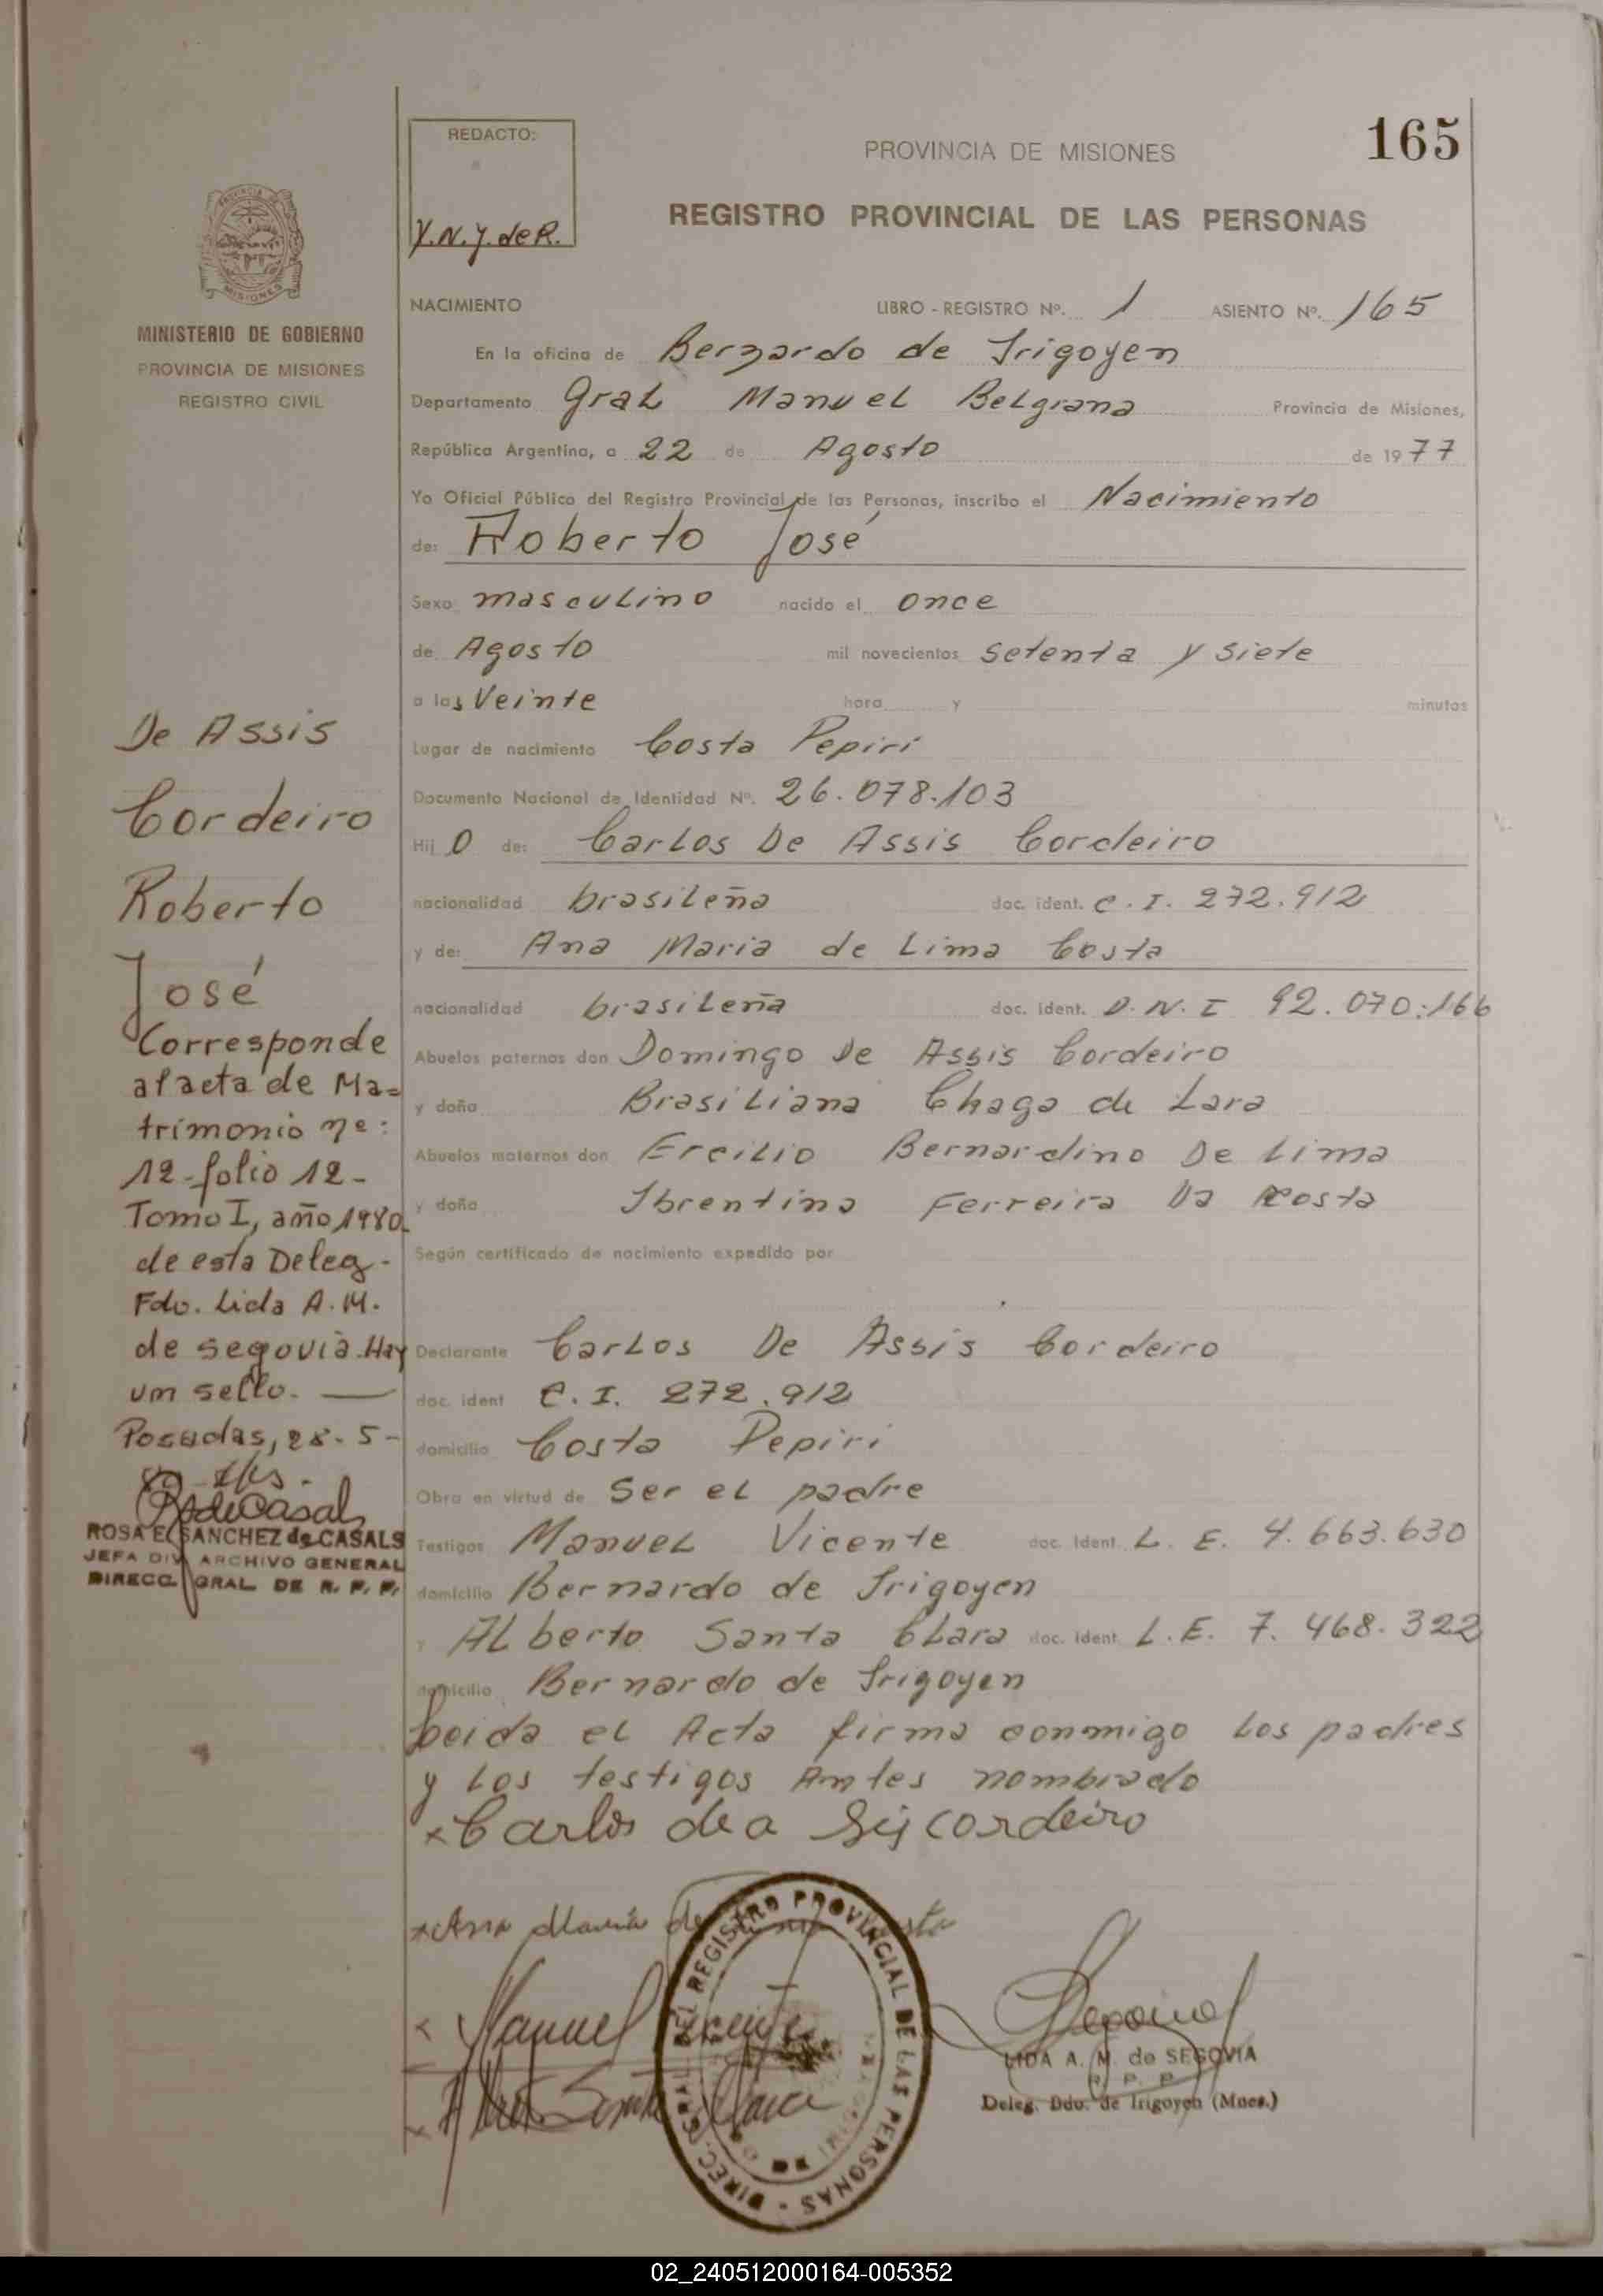 165
REDACTO:
Y.N.Y. de R.
PROVINCIA DE MISIONES
REGISTRO PROVINCIAL DE LAS PERSONAS
MISIONES
MINISTERIO DE GOBIERNO
PROVINCIA DE MISIONES
REGISTRO CIVIL
NACIMIENTO LIBRO - REGISTRO Nº. 1 ASIENTO Nº. 165
En la oficina de Bernardo de Irigoyen
Departamento Gral Manuel Belgrano Provincia de Misiones,
República Argentina, a 22 de Agosto de 1977
Yo Oficial Público del Registro Provincial de las Personas, inscribo el Nacimiento
de: Roberto José
Sexo masculino nacido el once
de Agosto mil novecientos setenta y siete
a las Veinte hora y minutos
Lugar de nacimiento Costa Pepiri
Documento Nacional de Identidad Nº. 26.078.103
Hij o de: Carlos De Assis Cordeiro
nacionalidad brasileña doc. ident. C.I. 272.912
y de: Ana Maria de Lima Costa
nacionalidad brasileña doc. ident. D.N.I 92.070.166
Abuelos paternos don Domingo De Assis Cordeiro
y doña Brasiliana Chaga de Lara
Abuelos maternos don Ercilio Bernardino De Lima
y doña Ibrentina Ferreira Da Costa
Según certificado de nacimiento expedido por
Declarante Carlos De Assis Cordeiro
doc. ident C.I. 272.912
domicilio Costa Pepiri
Obra en virtud de Ser el padre
Testigos Manuel Vicente doc. Ident. L.E. 4.663.630
domicilio Bernardo de Irigoyen
y ALberto Santa Clara doc. Ident. L.E. 7.468.322
domicilio Bernardo de Irigoyen
Leida el Acta firma conmigo los padres
y los testigos Antes nombrado
x Carlos de a Sis cordeiro
x Ana Maria de
x Manuel Vicente
x Santa Clara
DIREC. GRAL. DEL REGISTRO PROVINCIAL DE LAS PERSONAS
LIDA A. M. de SEGOVIA
R. P. P.
Deleg. Bdo. de Irigoyen (Mnes.)
De Assis
Cordeiro
Roberto
José
Corresponde
al acta de Ma=
trimonio nº:
12-folio 12-
Tomo I, año 1980
de esta Deleg-
Fdo. Lida A. M.
de segovia. Hay
um sello.
Posadas, 28-5-
80
ROSA E. SANCHEZ de CASALS
JEFA DIV. ARCHIVO GENERAL
DIRECC. GRAL DE R. P. P.
02_240512000164-005352